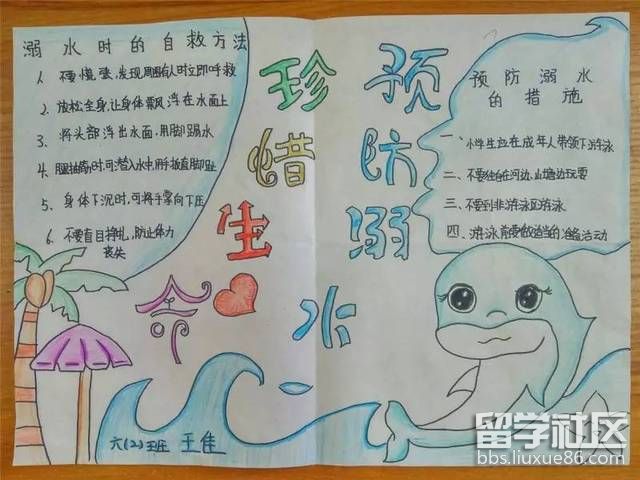 溺水时的自救方法
1、不要慌张,发现周围有人时立即呼救
2、放松全身,让身体飘浮在水面上
3、将头部浮出水面,用脚踢水
4、腿抽筋时,可潜入水中,用手扳直脚趾
5、身体下沉时,可将手掌向下压
6、不要盲目挣扎,防止体力
丧失
珍惜生命
预防溺水
预防溺水
的措施
一、小学生应在成年人带领下游泳
二、不要独自在河边、山塘边玩耍
三、不要到非游泳区游泳
四、游泳前要做适当的准备活动
六(2)班 王佳
留学社区
bbs.liuxue86.com